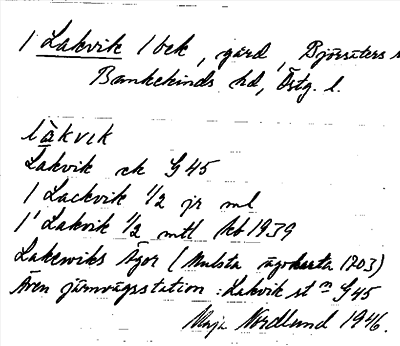 1 Lakvik 1 bek, gård, Björsäters s
Bankekinds hd, Östg. l.
låkvik
Lakvik ek G45
1 Lackvik 1/2 jr ml
1 Lakvik 1/2 mtl Jb 1939
Lakewiks Ägor (Mulsta ägokarta 1703)
Även järnvägsstation: Lakvik stn G45
Maja Nordlund 1946.